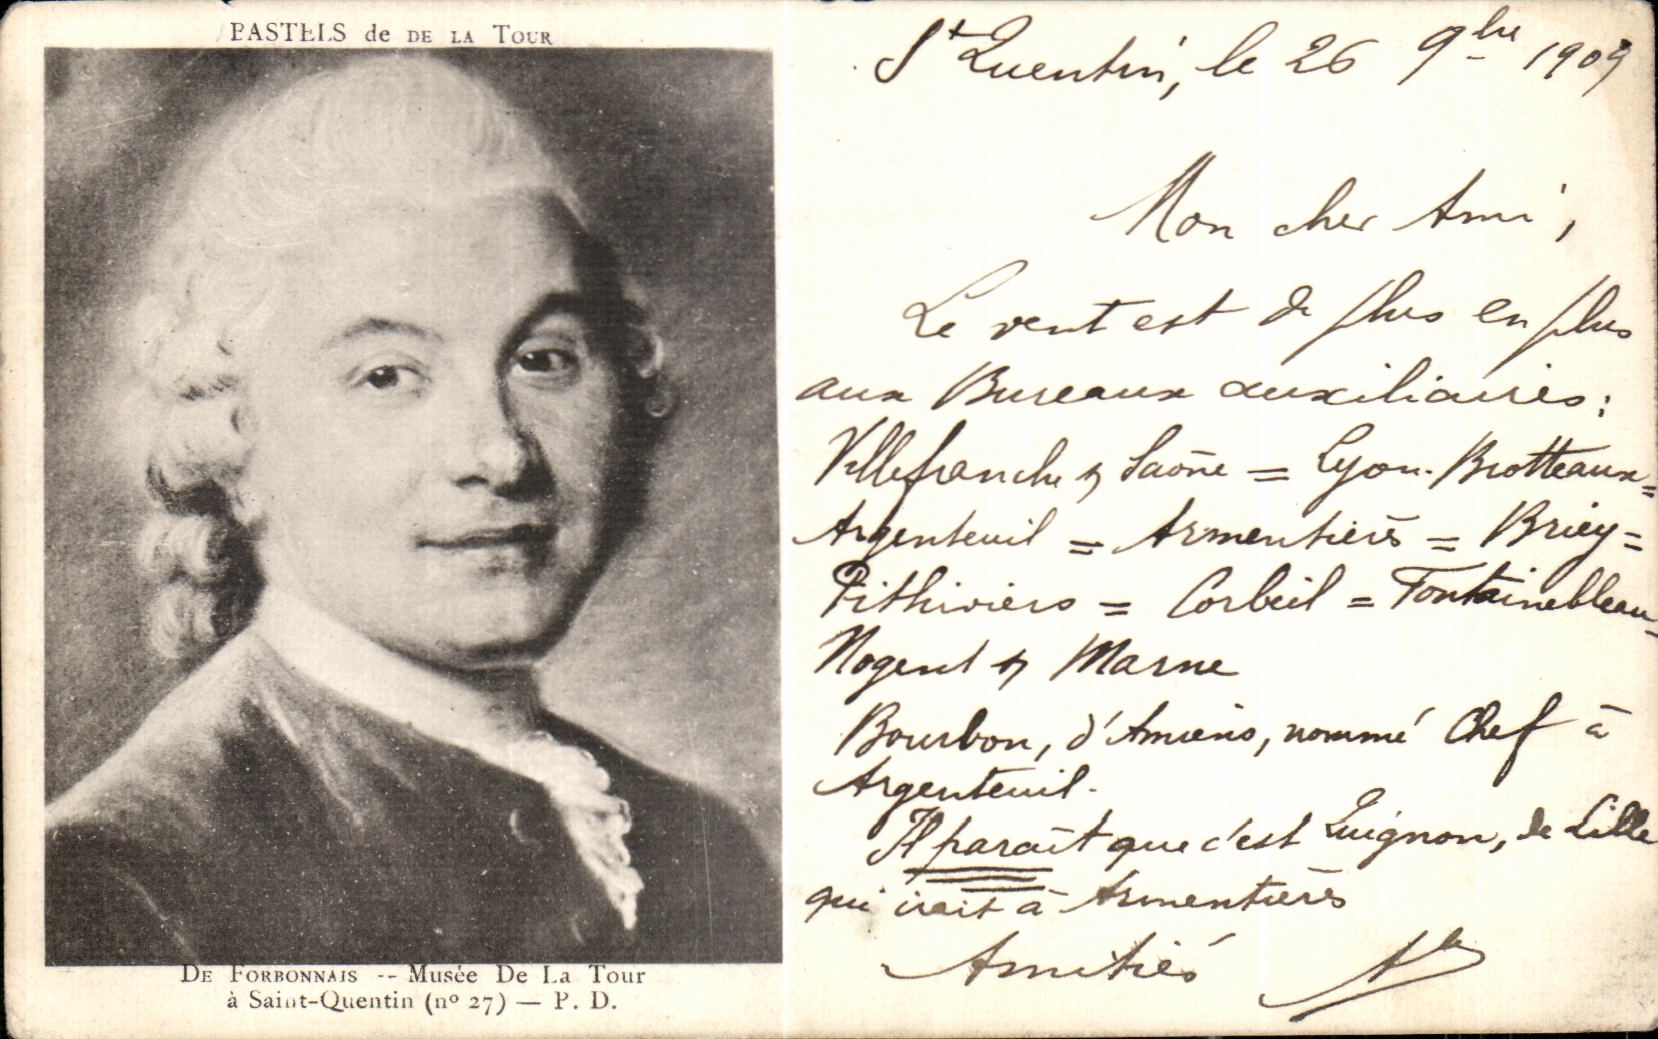 PASTELS de DE LA TOUR
DE FORBONNAIS -- Musée De La Tour
à Saint-Quentin (nº 27) — P. D.
St Quentin, le 26 9bre 1909
Mon cher Ami,
Le vent est de plus en plus
aux Bureaux auxiliaires :
Villefranche s/ Saône = Lyon-Brotteaux =
Argenteuil = Armentières = Briey =
Pithiviers = Corbeil = Fontainebleau =
Nogent s/ Marne
Bourbon, d'Amiens, nommé Chef à
Argenteuil.
Il paraît que c'est Guignon, de Lille
qui irait à Armentières
Amitiés